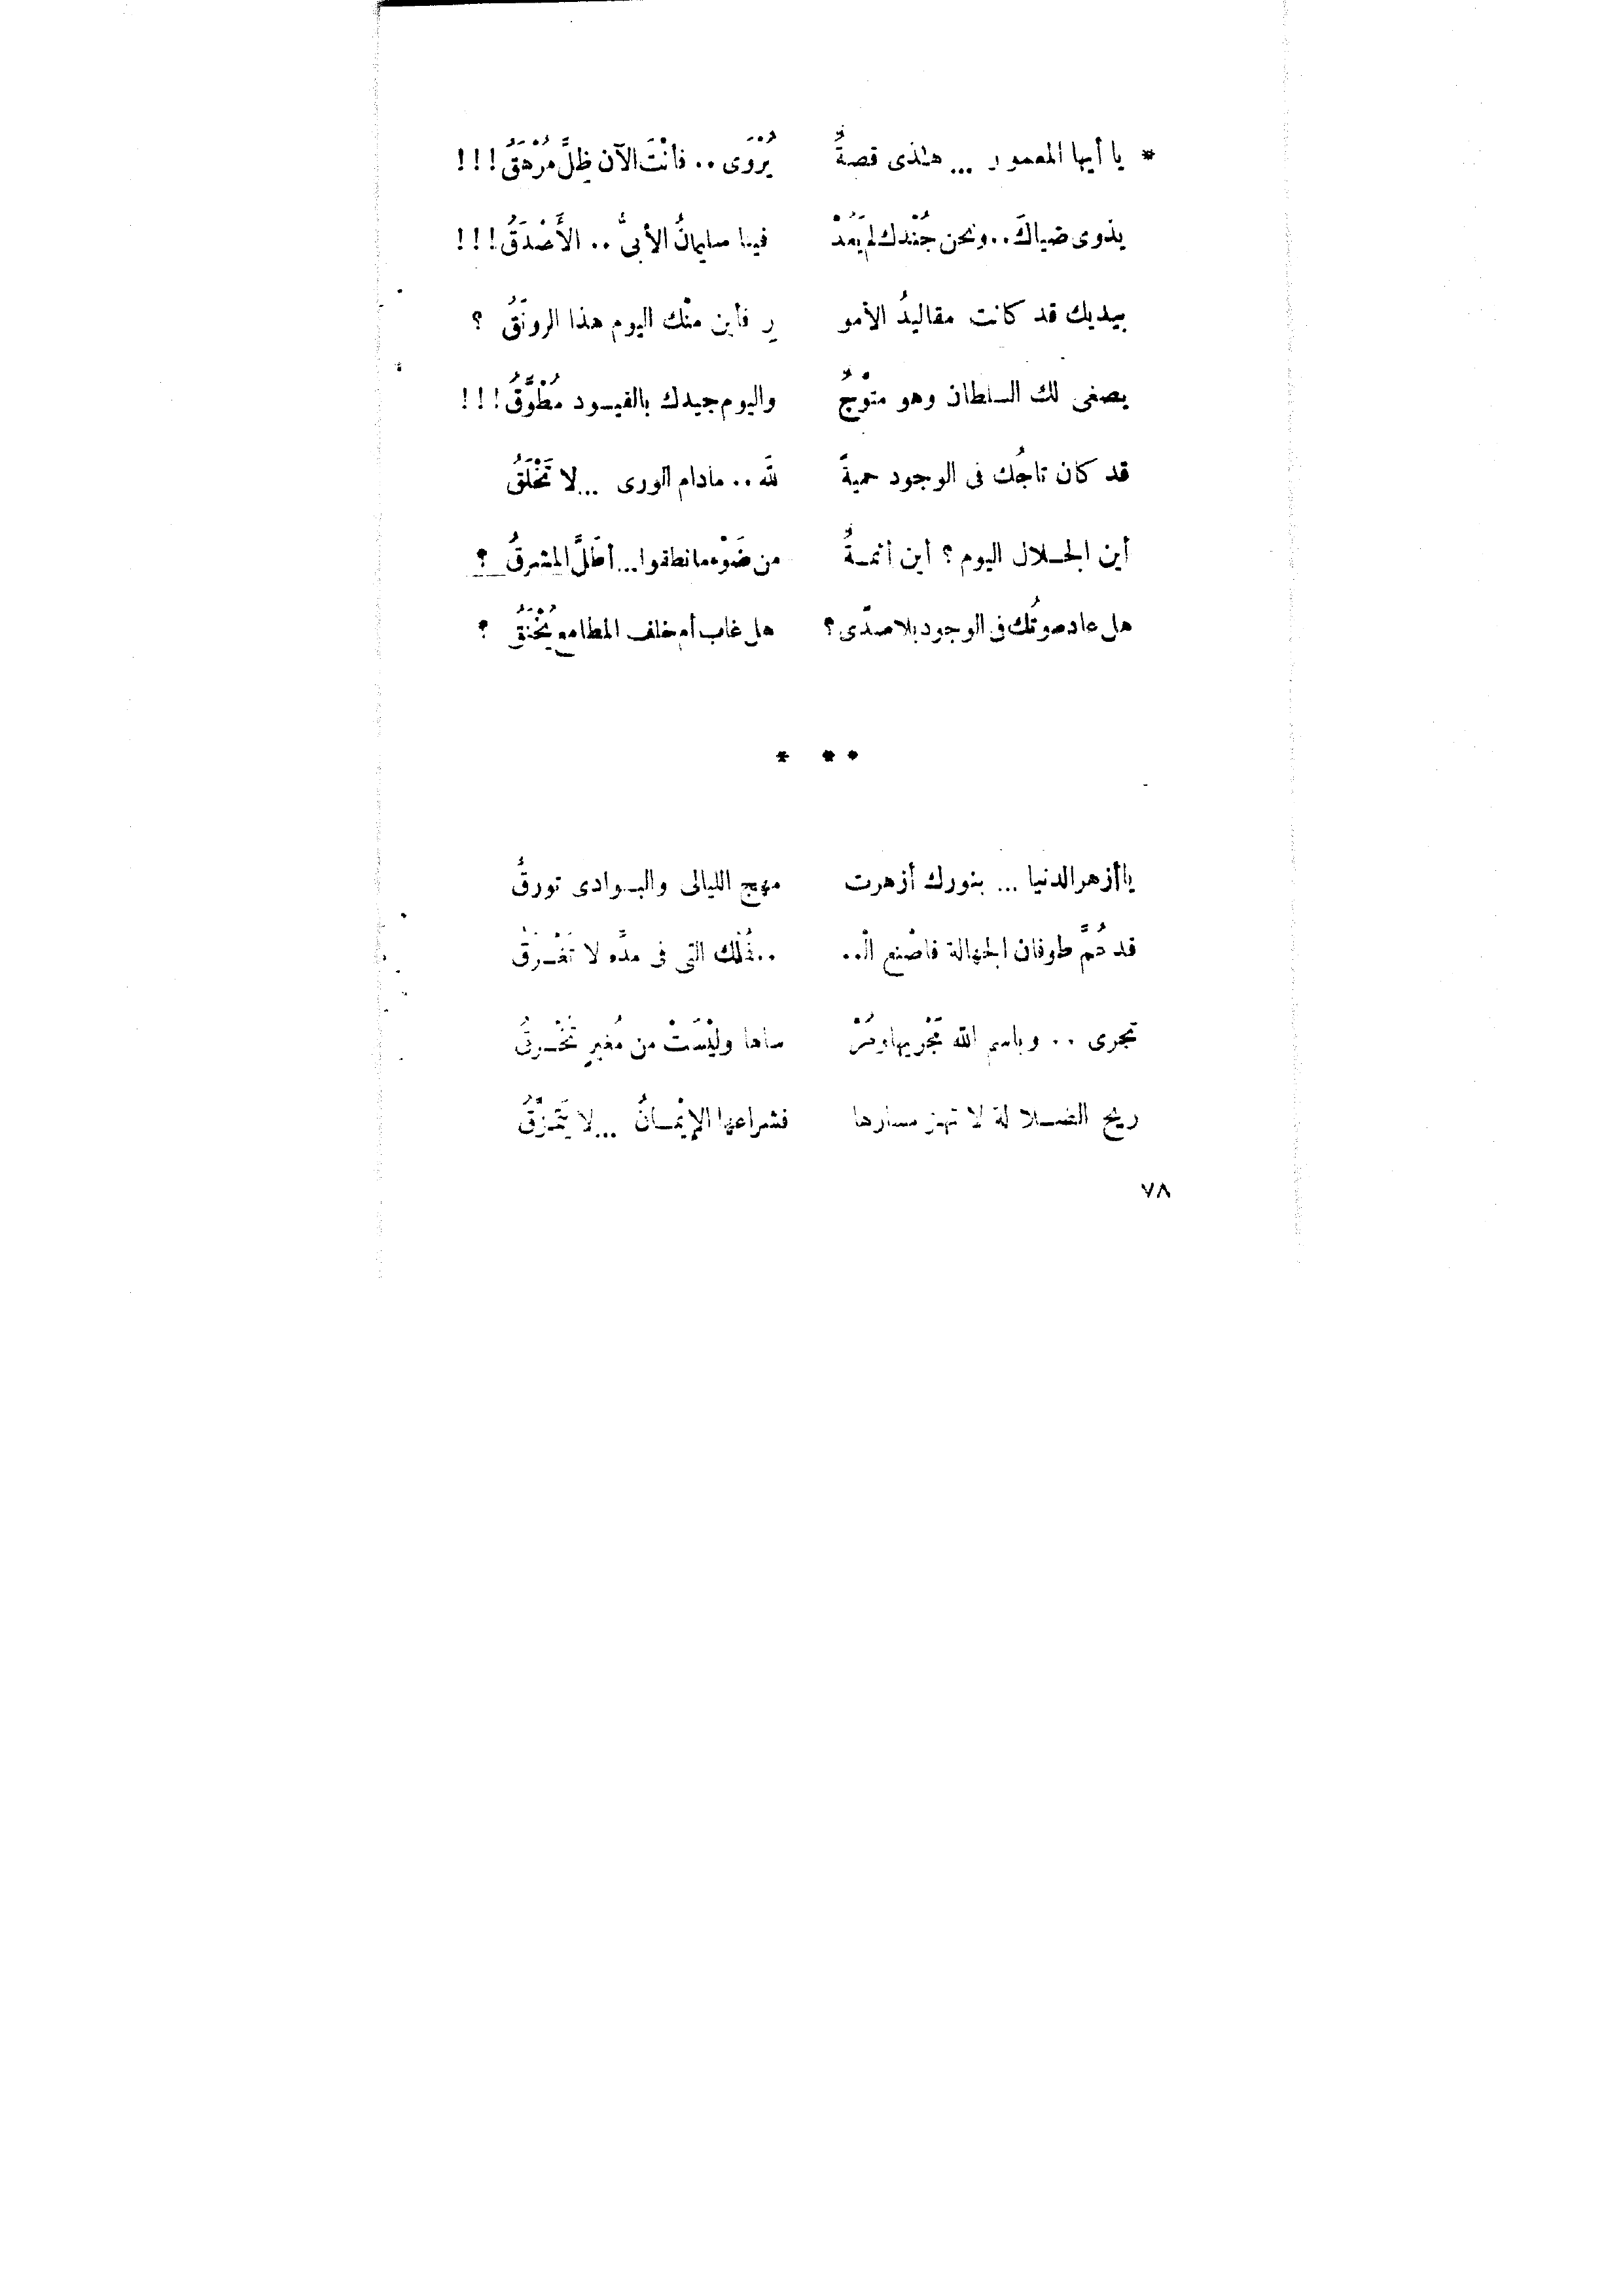 * يا أيها المعمور ... هٰذى قصةٌ يُرْوَى .. فأنْتَ الآن ظِلَّ مُرْهَقُ !!!
يذوى ضياكَ .. ونحن جُنْدك لم يَعُدْ فينا سليمانُ الأبىُّ .. الأَصْدَقُ !!!
بيديك قد كانت مقاليدُ الأمو رِ فأين منْك اليوم هذا الرونَقُ ؟
يصغى لك السلطان وهو متوْجٌ واليوم جيدك بالقيـود مُطْوَّقُ !!!
قد كان تاجُك فى الوجود حميةً للّه .. مادام الورى ... لا تَخْلَقُ
أين الجـلال اليوم ؟ أين أئمـةٌ من ضَوْء ما نطقوا ... أطَلَّ المشرقُ ؟
هل عاد صوتُك فى الوجود بلا صدًى ؟ هل غاب أم خلف المطامع يُخْنَقُ ؟
* * *
يا أزهر الدنيا ... بنورك أزهرت مهج الليالى والبـوادى تورقُ
قد حُمَّ طوفان الجهالة فاصْنع الْ .. .. فُلْك التى فى مدَّه لا تَغْـرَقُ
تجرى .. وباسم اللّه مَجْريها ومُرْ ساها وليْسَتْ من مُغيرٍ تُخْـرَقُ
ريح الضـلالة لا تهز مسارها فشراعها الإيْمـانُ ... لا يَتَمزَّقُ
٧٨